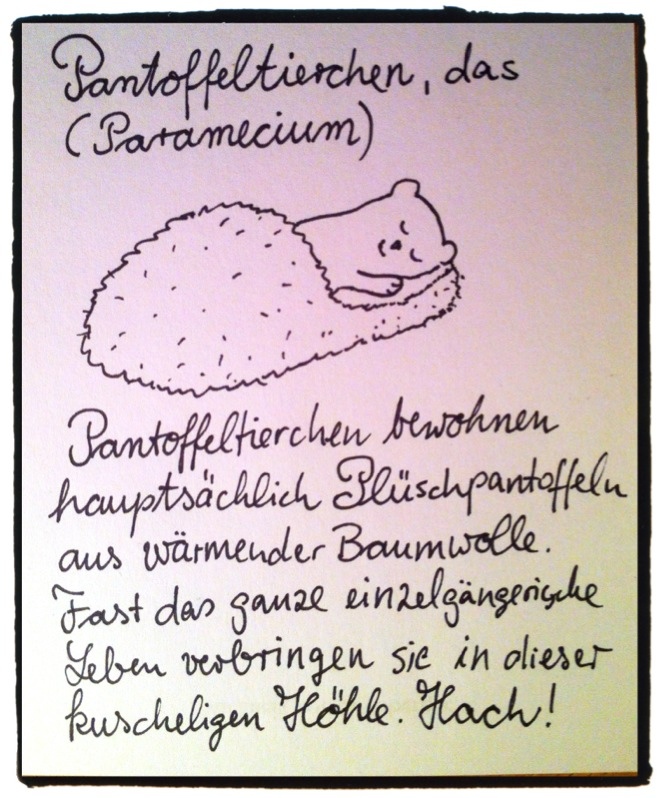 Pantoffeltierchen, das
(Paramecium)
Pantoffeltierchen bewohnen
hauptsächlich Plüschpantoffeln
aus wärmender Baumwolle.
Fast das ganze einzelgängerische
Leben verbringen sie in dieser
kuscheligen Höhle. Hach!